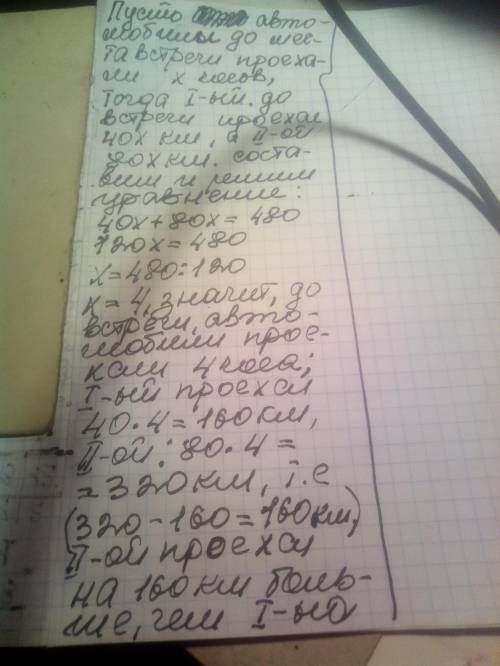 Пусть авто-
мобили до мес-
та встречи проеха-
ли х часов,
тогда I-ый до
встречи проехал
40х км, а II-ой
80х км. соста-
вим и решим
уравнение:
40х + 80х = 480
120х = 480
х = 480:120
х = 4, значит, до
встречи, авто-
мобили прое-
хали 4 часа;
I-ый проехал
40·4 = 160 км,
II-ой: 80·4 =
= 320 км, т.е
(320-160=160 км,)
II-ой проехал
на 160 км боль-
ше, чем I-ый